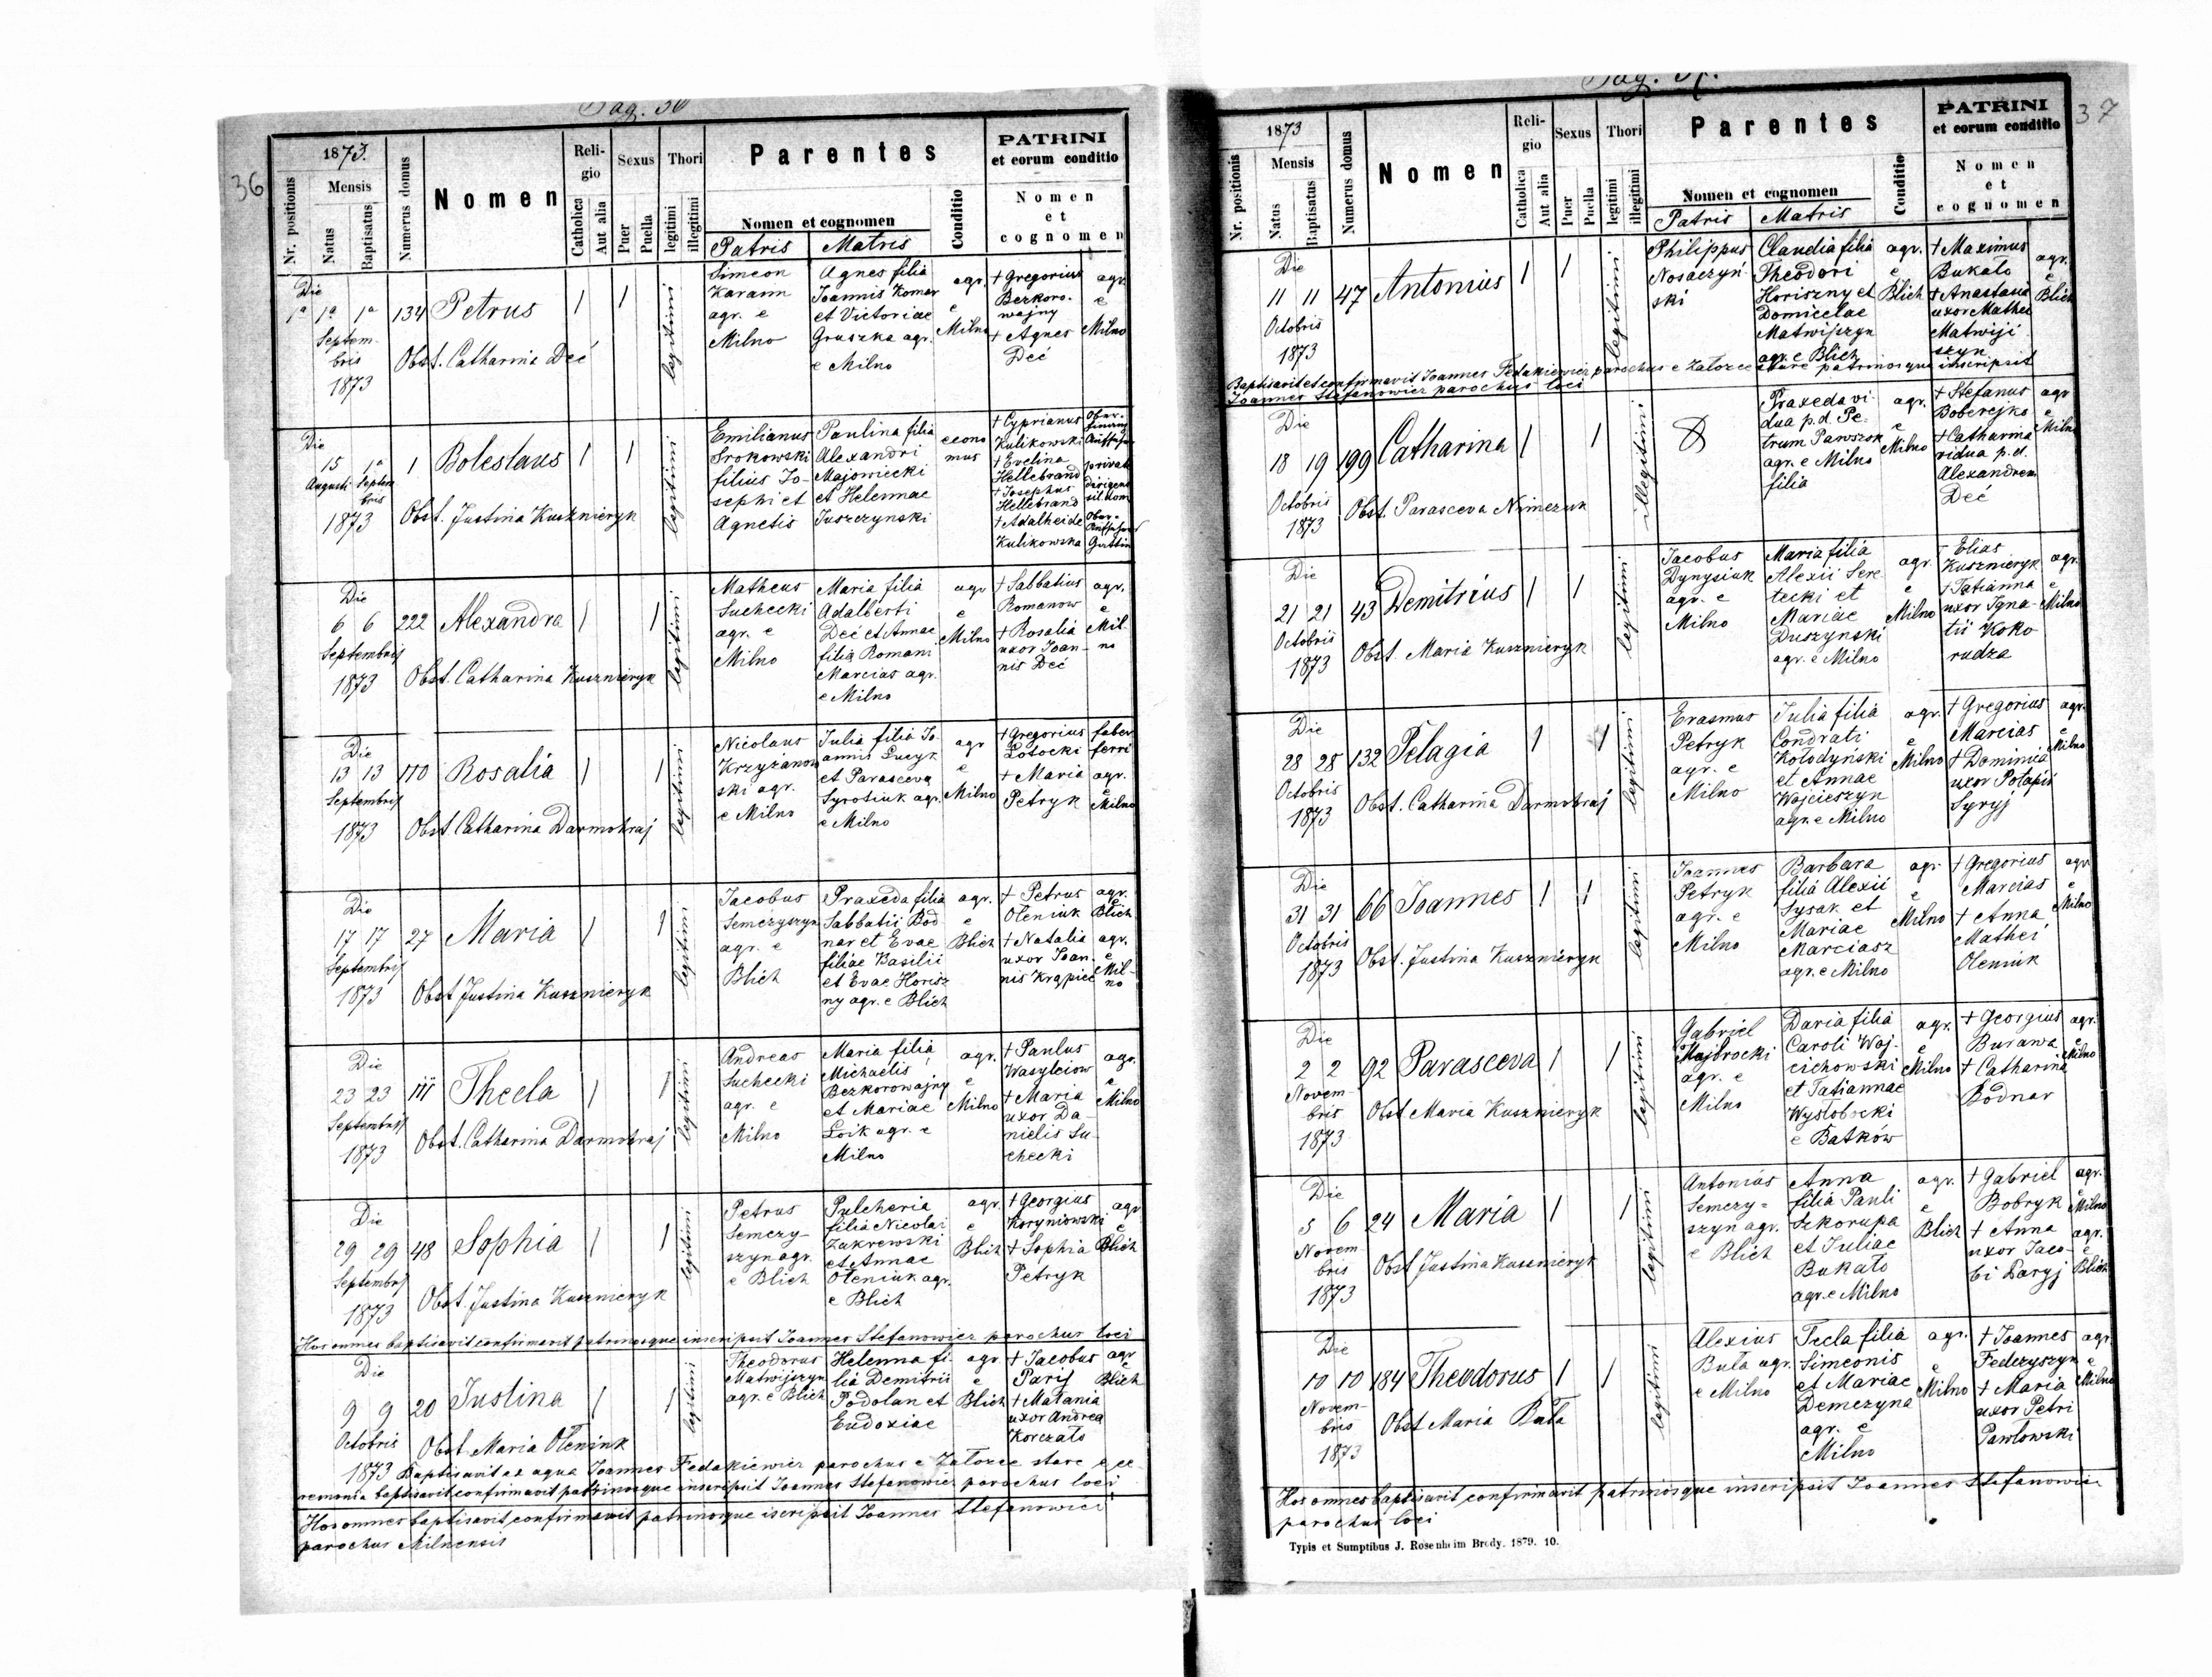 Pag. 36
36
1873.
Nr. positionis
Mensis
Natus
Baptisatus
Numerus domus
Nomen
Religio
Catholica
Aut alia
Sexus
Puer
Puella
Thori
legitimi
illegitimi
Parentes
Nomen et cognomen
Patris
Matris
Conditio
PATRINI
et eorum conditio
Nomen
et
cognomen
Die
1ª 1ª 1ª
Septem-
bris
1873
134
Petrus
1 1
legitimi
Obst. Catharina Deć
Simeon
Karann
agr. e
Milno
Agnes filia
Joannis Komar
et Victoriae
Gruszka agr.
e Milno
agr.
e
Milno
† Gregorius
Bezkoro-
wajny
† Agnes
Deć
agr.
e
Milno
Die
15 1ª
Augusti Septem
bris
1873
1
Boleslaus
1 1
legitimi
Obst. Justina Kusznieryk
Emilianus
Srokowski
filius Jo-
sephi et
Agnetis
Paulina filia
Alexandri
Majowiecki
et Helennae
Juszczynski
econo
mus
† Cyprianus
Kulikowski
† Evelina
Hellebrand
† Josephus
Hellebrand
† Adalheide
Kulikowska
privat
dirigens
Ober-
Gattin
Die
6 6
Septembris
1873
222
Alexandra
1 1
legitimi
Obst. Catharina Kusznieryk
Matheus
Suchecki
agr. e
Milno
Maria filia
Adalberti
Deć et Annae
filia Romani
Marcias agr.
e Milno
agr
e
Milno
† Sabbatius
Romanow
† Rosalia
uxor Joan-
nis Deć
agr.
e
Mil-
no
Die
13 13
Septembris
1873
170
Rosalia
1 1
legitimi
Obst. Catharina Darmohraj
Nicolaus
Krzyżanow
ski agr.
e Milno
Julia filia Jo-
annis Łucyk
et Parasceva
Syrotiuk agr.
e Milno
agr
e
Milno
† Gregorius
Łotocki
† Maria
Petryk
faber
ferri
agr.
e
Milno
Die
17 17
Septembris
1873
27
Maria
1 1
legitimi
Obst Justina Kusznieryk
Jacobus
Semczyszyn
agr. e
Blich
Praxeda filia
Sabbatii Bod
nar et Evae
filiae Basilii
et Evae Horisz
ny agr. e Blich
agr.
e
Blich
† Petrus
Oleniuk
† Natalia
uxor Joan-
nis Krąpiec
agr.
e
Blich
agr.
e
Mil-
no
Die
23 23
Septembris
1873
111
Thecla
1 1
legitimi
Obst. Catharina Darmohraj
Andreas
Suchecki
agr. e
Milno
Maria filia
Michaelis
Bezkorowajny
et Mariae
Łoik agr. e
Milno
agr.
e
Milno
† Paulus
Wasylciow
† Maria
uxor Da-
nielis Su-
checki
agr.
e
Milno
Die
29 29
Septembris
1873
48
Sophia
1 1
legitimi
Obst. Justina Kusznieryk
Petrus
Semczy-
szyn agr.
e Blich
Pulcheria
filia Nicolai
Zakrewski
et Annae
Oleniuk agr.
e Blich
agr
e
Blich
† Georgius
Koryniowski
† Sophia
Petryk
agr
e
Blich
Hos omnes baptisavit confirmavit patrinosque inscripsit Joannes Stefanowicz parochus loci
Die
9 9
Octobris
1873
20
Justina
1 1
legitimi
Obst. Maria Oleniuk
Theodorus
Matwijszyn
agr. e Blich
Helenna fi-
lia Demitrii
Podolan et
Eudoxiae
agr.
e
Blich
† Jacobus
Parij
† Matania
uxor Andrea
Korczato
agr
e
Blich
Baptisavit ex aqua Joannes Fedakiewicz parochus e Załozce stare e ce-
remonia baptisavit confirmavit patrinosque inscripsit Joannes Stefanowicz parochus loci
Hos omnes baptisavit confirmavit patrinosque iscripsit Joannes Stefanowicz
parochus Milnensis
Pag. 37.
37
1873
Nr. positionis
Mensis
Natus
Baptisatus
Numerus domus
Nomen
Religio
Catholica
Aut alia
Sexus
Puer
Puella
Thori
legitimi
illegitimi
Parentes
Nomen et cognomen
Patris
Matris
Conditio
PATRINI
et eorum conditio
Nomen
et
cognomen
Die
11 11
Octobris
1873
47
Antonius
1 1
legitimi
Philippus
Nosaczyń-
ski
Claudia filia
Theodori
Horiszny et
Domicelae
Matwijszyn
agr. e Blich
agr.
e
Blich
† Maximus
Bukato
† Anastasia
uxor Mathei
Matwiji
szyn
agr.
e
Blich
Baptisavit et confirmavit Joannes Fedakiewicz parochus e Załozce stare patrinosque inscripsit
Joannes Stefanowicz parochus loci
Die
18 19
Octobris
1873
199
Catharina
1 1
illegitimi
Obst. Parasceva Nimczuk
Praxeda vi
dua p.d. Pe-
trum Pawszok
agr. e Milno
filia
agr.
e
Milno
† Stefanus
Boberejko
† Catharina
vidua p.d.
Alexandrem
Deć
agr
e
Milno
Die
21 21
Octobris
1873
43
Demitrius
1 1
legitimi
Obst. Maria Kusznieryk
Jacobus
Dynysiuk
agr. e
Milno
Maria filia
Alexii Sere-
tecki et
Mariae
Duszynski
agr. e Milno
agr.
e
Milno
† Elias
Kusznieryk
† Tatianna
uxor Igna-
tii Koko
rudza
agr.
e
Milno
Die
28 28
Octobris
1873
132
Pelagia
1 1
legitimi
Obst. Catharina Darmohraj
Erasmus
Petryk
agr. e
Milno
Julia filia
Condrati
Kołodyński
et Annae
Wojcieszyn
agr. e Milno
agr.
e
Milno
† Gregorius
Marcias
† Dominica
uxor Potapii
Syryj
agr.
e
Milno
Die
31 31
Octobris
1873
66
Joannes
1 1
legitimi
Obst. Justina Kusznieryk
Joannes
Petryk
agr. e
Milno
Barbara
filia Alexii
Sysak et
Mariae
Marciasz
agr. e Milno
agr.
e
Milno
† Gregorius
Marcias
† Anna
Mathei
Oleniuk
agr
e
Milno
Die
2 2
Novem-
bris
1873
92
Parasceva
1 1
legitimi
Obst Maria Kusznieryk
Gabriel
Majbrocki
agr. e
Milno
Daria filia
Caroli Woj-
cichowski
et Tatiannae
Wysłobocki
e Batków
agr.
e
Milno
† Georgius
Burawa
† Catharina
Bodnar
agr.
e
Milno
Die
5 6
Novem
bris
1873
24
Maria
1 1
legitimi
Obst Justina Kusznieryk
Antonius
Semczy-
szyn agr.
e Blich
Anna
filia Pauli
Szkorupa
et Juliae
Bukato
agr. e Milno
agr.
e
Blich
† Gabriel
Bobryk
† Anna
uxor Jaco-
bi Paryj
agr.
e
Milno
agr.
e
Blich
Die
10 10
Novem-
bris
1873
184
Theodorus
1 1
legitimi
Obst Maria Buła
Alexius
Buła agr.
e Milno
Tecla filia
Simeonis
et Mariae
Demczyna
agr. e
Milno
agr.
e
Milno
† Joannes
Fedczyszyn
† Maria
uxor Petri
Pawłowski
agr.
e
Milno
Hos omnes baptisavit confirmavit patrinosque inscripsit Joannes Stefanowicz
parochus loci
Typis et Sumptibus J. Rosenheim Brody. 1879. 10.